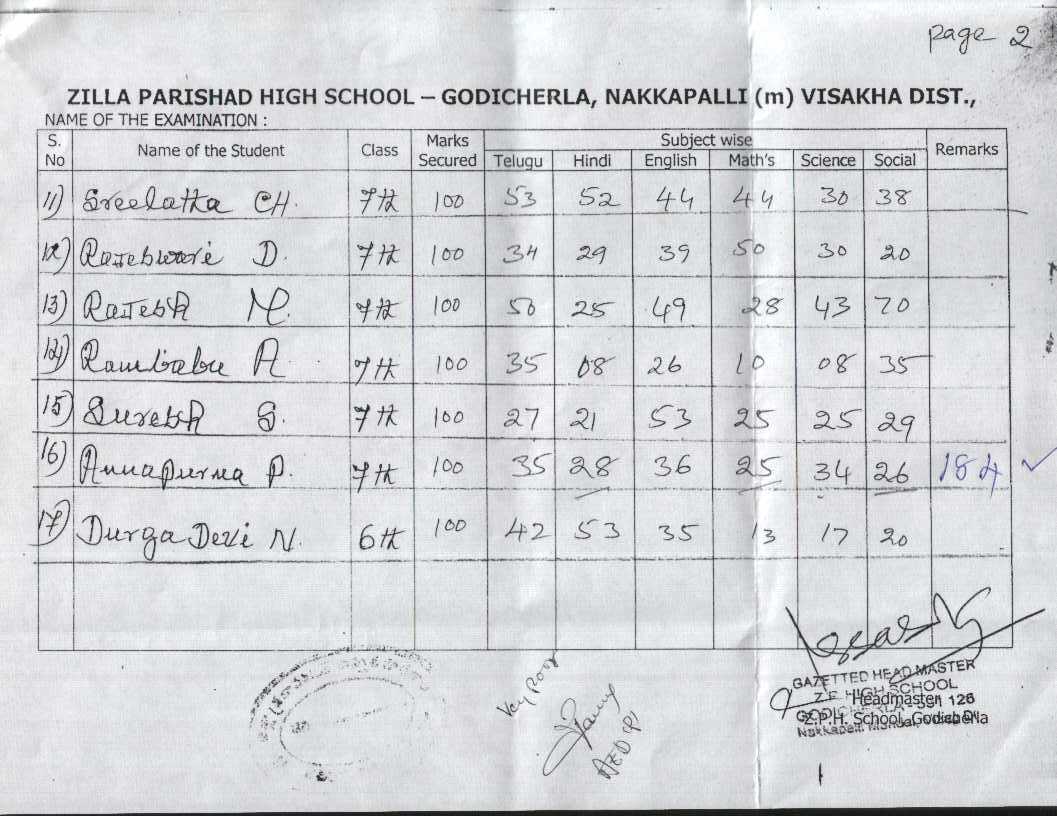 page 2
ZILLA PARISHAD HIGH SCHOOL – GODICHERLA, NAKKAPALLI (m) VISAKHA DIST.,
NAME OF THE EXAMINATION :
S. No Name of the Student Class Marks Secured Subject wise Remarks
Telugu Hindi English Math's Science Social
11) Sreelatha CH. 7th 100 53 52 44 44 30 38
12) Rajeswari D. 7th 100 34 29 39 50 30 20
13) Rajesh M. 7th 100 50 25 49 28 43 20
14) Rambabu A 7th 100 35 08 26 10 08 35
15) Suresh S. 7th 100 27 21 53 25 25 29
16) Annapurna P. 7th 100 35 28 36 25 34 26 184 ✓
17) Durga Devi N. 6th 100 42 53 35 13 17 20
Very Poor
GAZETTED HEAD MASTER
Z P HIGH SCHOOL
Headmaster 126
Z.P.H. School, Godicherla